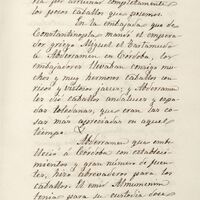 por arruinar completamente
los pocos caballos que poseemos.
En la embajada que de
Constantinopla mandó el empera
dor griego Miguel el Tartamudo
a Abderramen en Córdoba, los
embajadores llevaban consigo mu-
chos y muy hermosos caballos con
ricos y vistosos jaeces; y Abderra-
men dió caballos andaluces y espa-
das toledanas, que eran las co-
sas mas apreciadas en aquel
tiempo.
Abderramen que embe-
lleció a Córdoba con estableci-
mientos y gran número de fuen-
tes, hizo abrevaderos para los
caballos. El emir Almumenin
tenia para su custodia doce